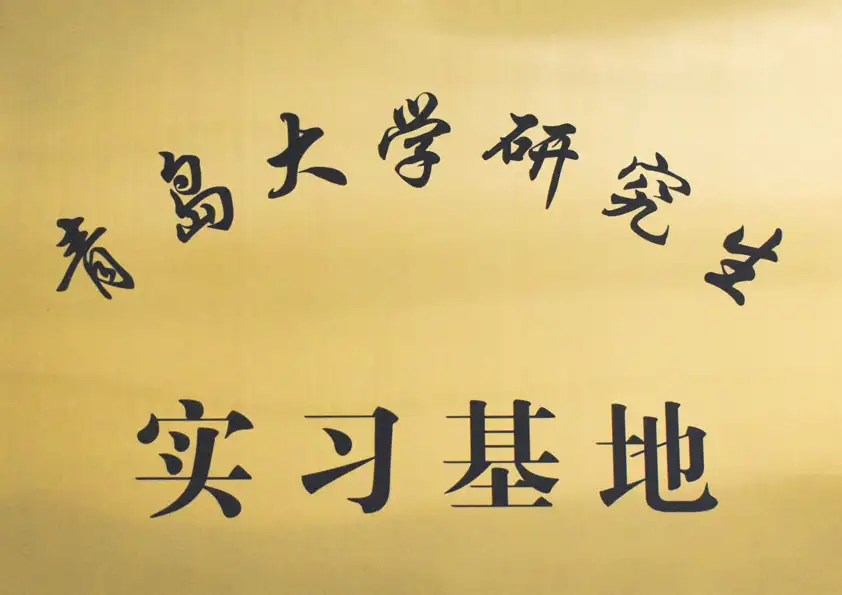 青岛大学研究生
实习基地